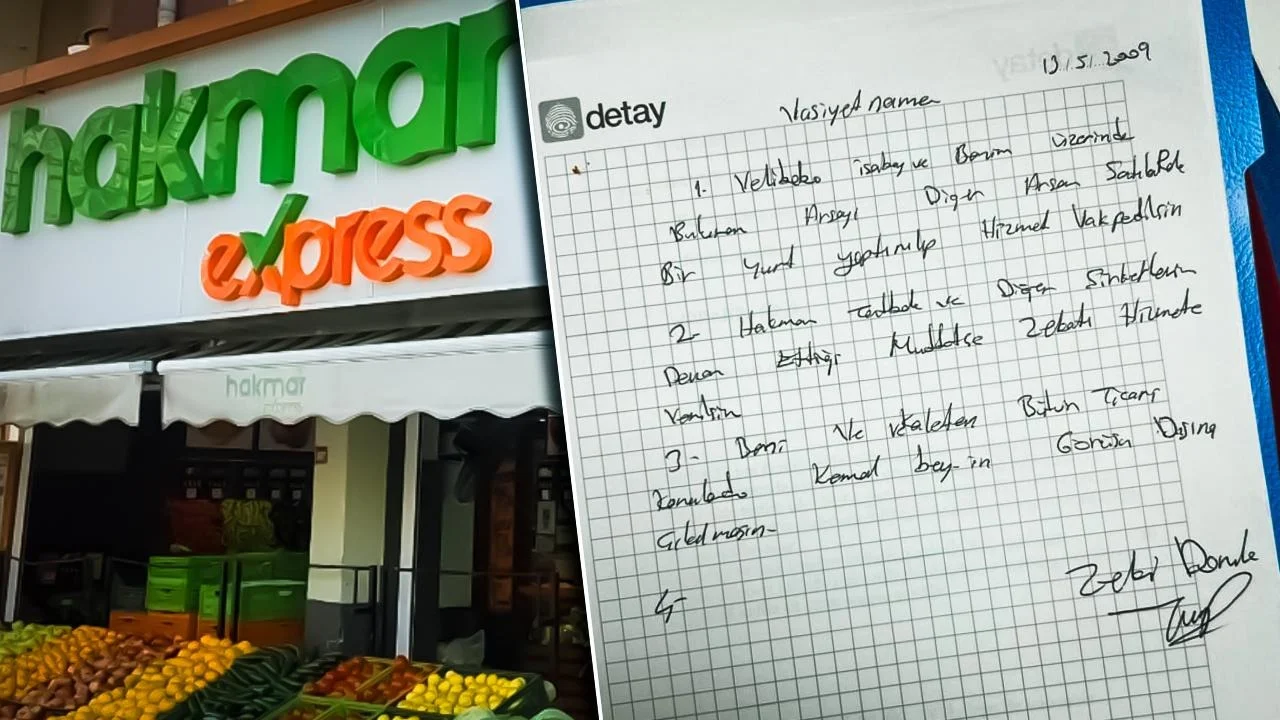 hakmar
express
hakmar
express
detay
13.5.2009
Vasiyetname
1- Velibaba isabey ve Benim üzerinde
Bulunan Arsayı Diğer Arsam Satılıkda
Bir Yurt yaptırılıp Hizmet Vakfedilsin
2- Hakmar ve Diğer Şirketlerim
Devam Ettiği Müddetçe Zekatı Hizmete
Verilsin
3- Beni Ve vekaleten Bütün Ticari
Konularda Kemal bey-in Görüşü Dışına
Çıkılmasın-
4-
Zeki